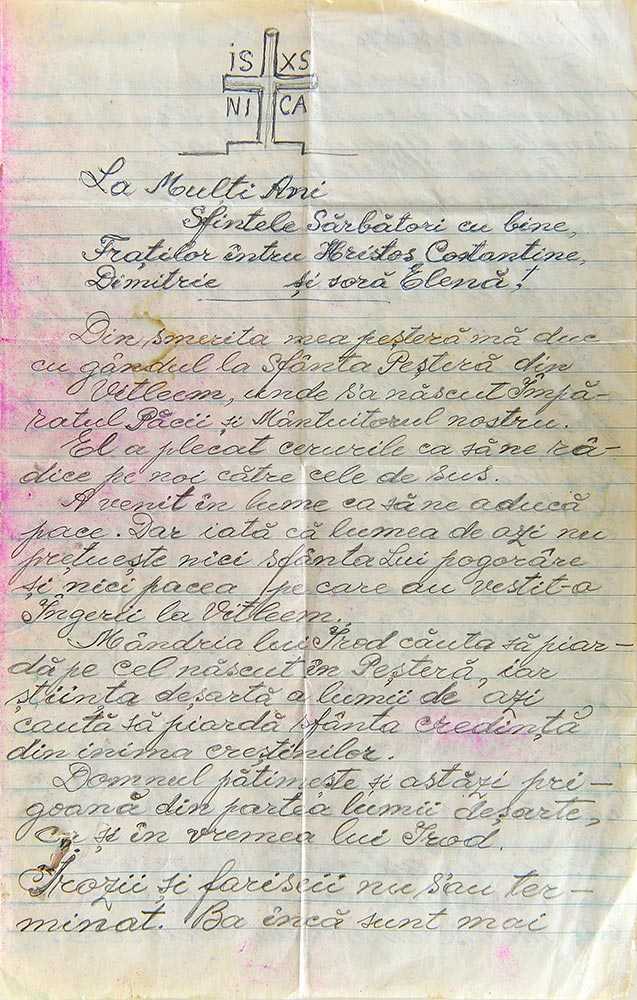 iS XS
NI CA
La Mulți Ani
Sfintele Sărbători cu bine,
Fraților întru Hristos, Costantine,
Dimitrie și soră Elenă!
Din smerita mea peșteră mă duc
cu gândul la Sfânta Peșteră din
Vitleem, unde s'a născut Împă-
ratul Păcii și Mântuitorul nostru.
El a plecat cerurile ca să ne râ-
dice pe noi către cele de sus.
A venit în lume ca să ne aducă
pace. Dar iată că lumea de azi nu
prețuește nici sfânta Lui pogorâre
și nici pacea pe care au vestit-o
Îngerii la Vitleem.
Mândria lui Irod căuta să piar-
dă pe cel născut în Peșteră, iar
știința deșartă a lumii de azi
caută să piardă sfânta credință
din inima creștinilor.
Domnul pătimește și astăzi pri-
goană din partea lumii deșarte,
ca și în vremea lui Irod.
Irozii și fariseii nu s'au ter-
minat. Ba încă sunt mai